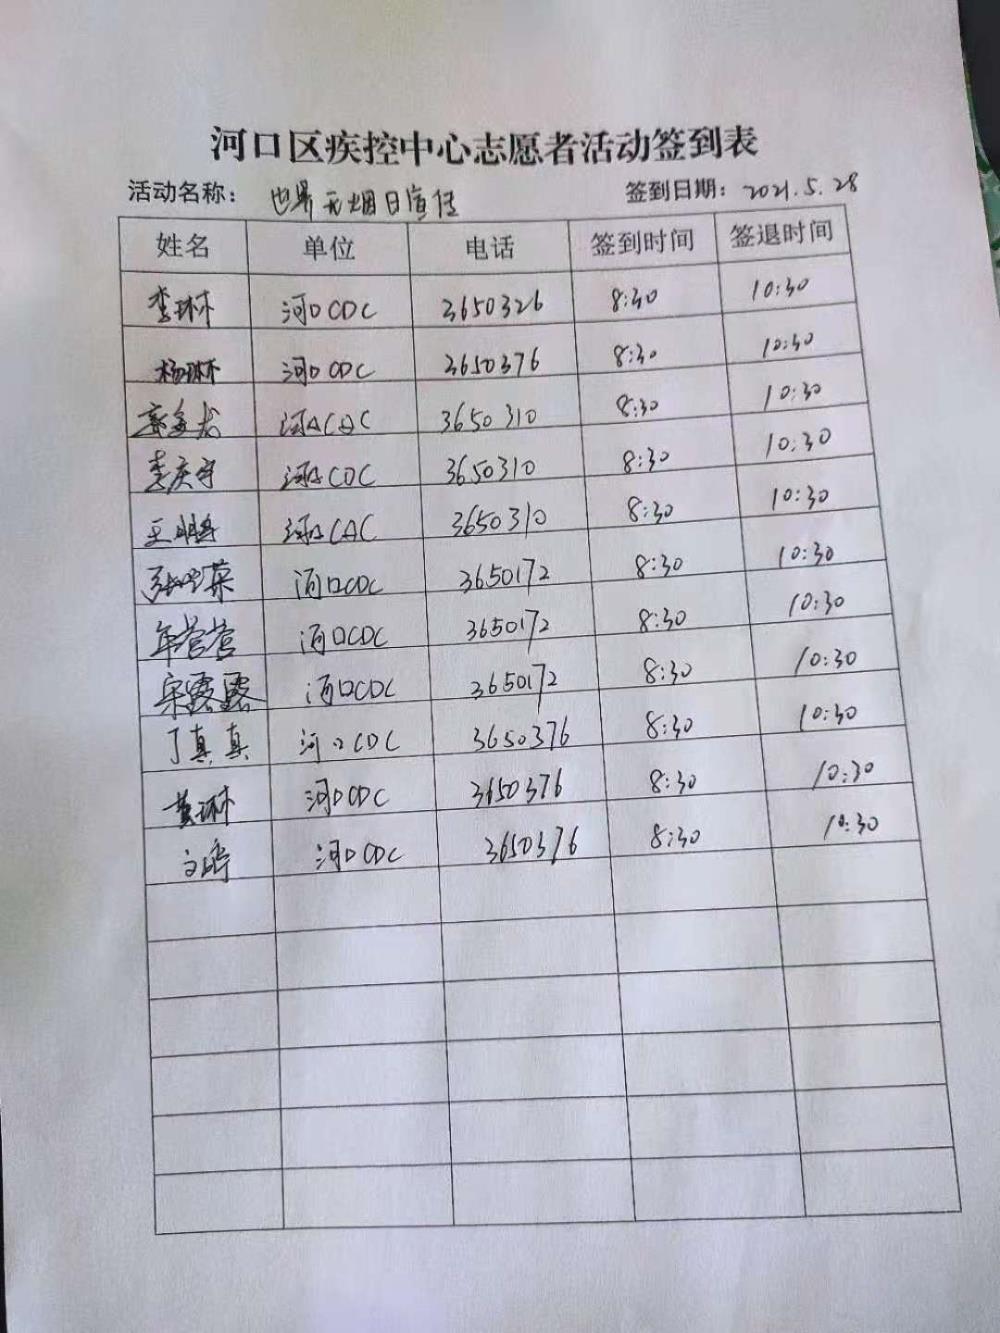 河口区疾控中心志愿者活动签到表
活动名称： 世界无烟日宣传 签到日期：2021.5.28
姓名 单位 电话 签到时间 签退时间
李琳 河口CDC 3650326 8:30 10:30
杨琳 河口CDC 3650376 8:30 10:30
河口CDC 3650310 8:30 10:30
李庆宇 河口CDC 3650310 8:30 10:30
王鹏 河口CDC 3650310 8:30 10:30
张 英 河口CDC 3650172 8:30 10:30
年营营 河口CDC 3650172 8:30 10:30
宋露露 河口CDC 3650172 8:30 10:30
丁真真 河口CDC 3650376 8:30 10:30
黄琳 河口CDC 3650376 8:30 10:30
河口CDC 3650376 8:30 10:30